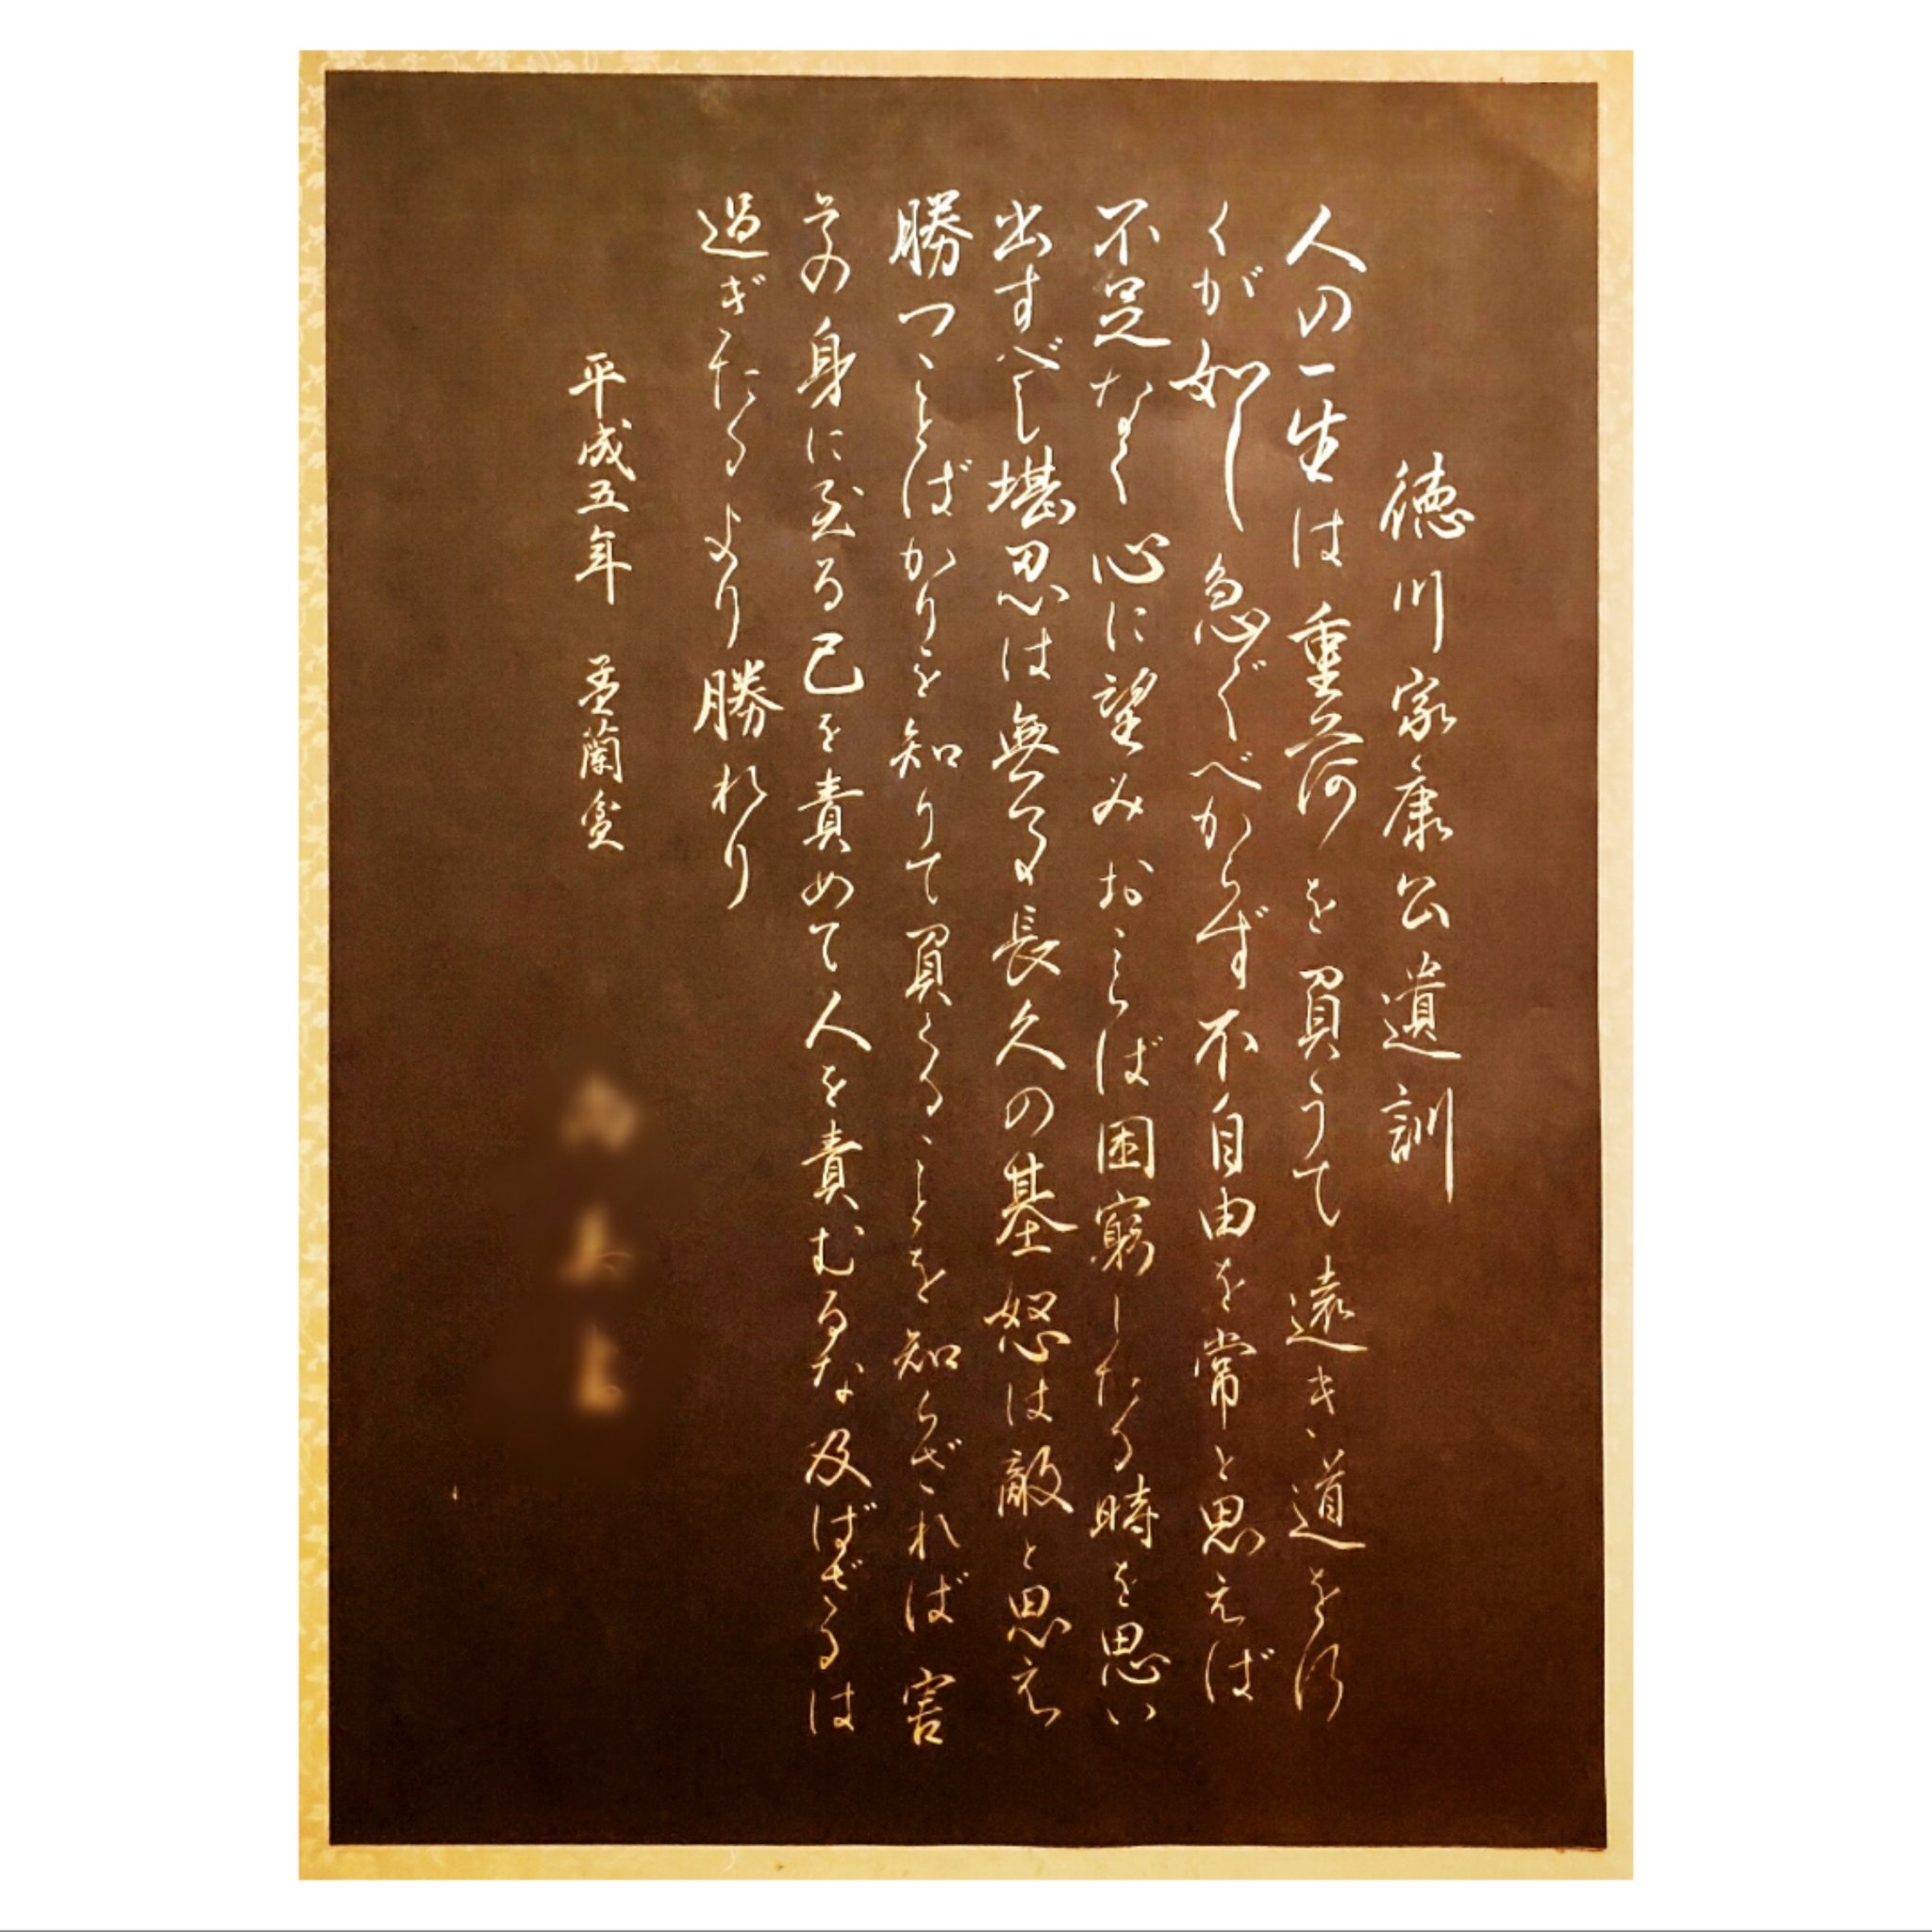 徳川家康公遺訓
人の一生は重荷を負うて遠き道を行
くが如し急ぐべからず不自由を常と思えば
不足なく心に望みおこらば困窮したる時を思い
出すべし堪忍は無事長久の基怒は敵と思え
勝つことばかりを知りて負くることを知らざれば害
その身に至る己を責めて人を責むるな及ばざるは
過ぎたるより勝れり
平成五年 孟蘭盆